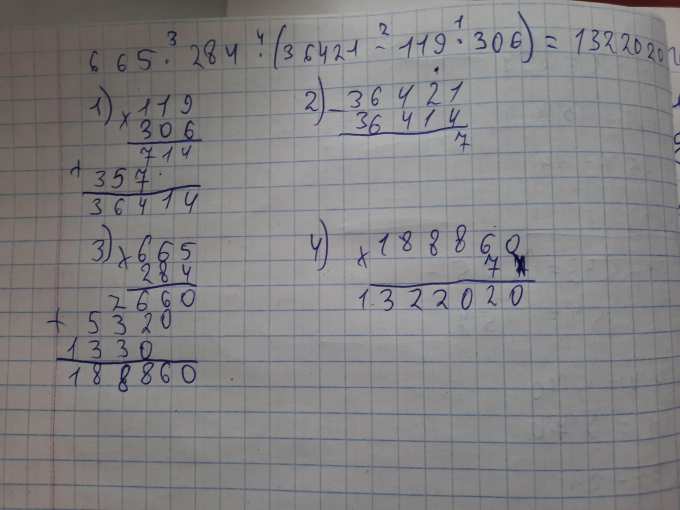 665 ·³ 284 :⁴ (36421 -² 119 ·¹ 306) = 1322020
1) × 119
306
714
+ 357
36414
2) - 36421
36414
7
3) × 665
284
2660
+ 5320
1330
188860
4) × 188860
7
1322020